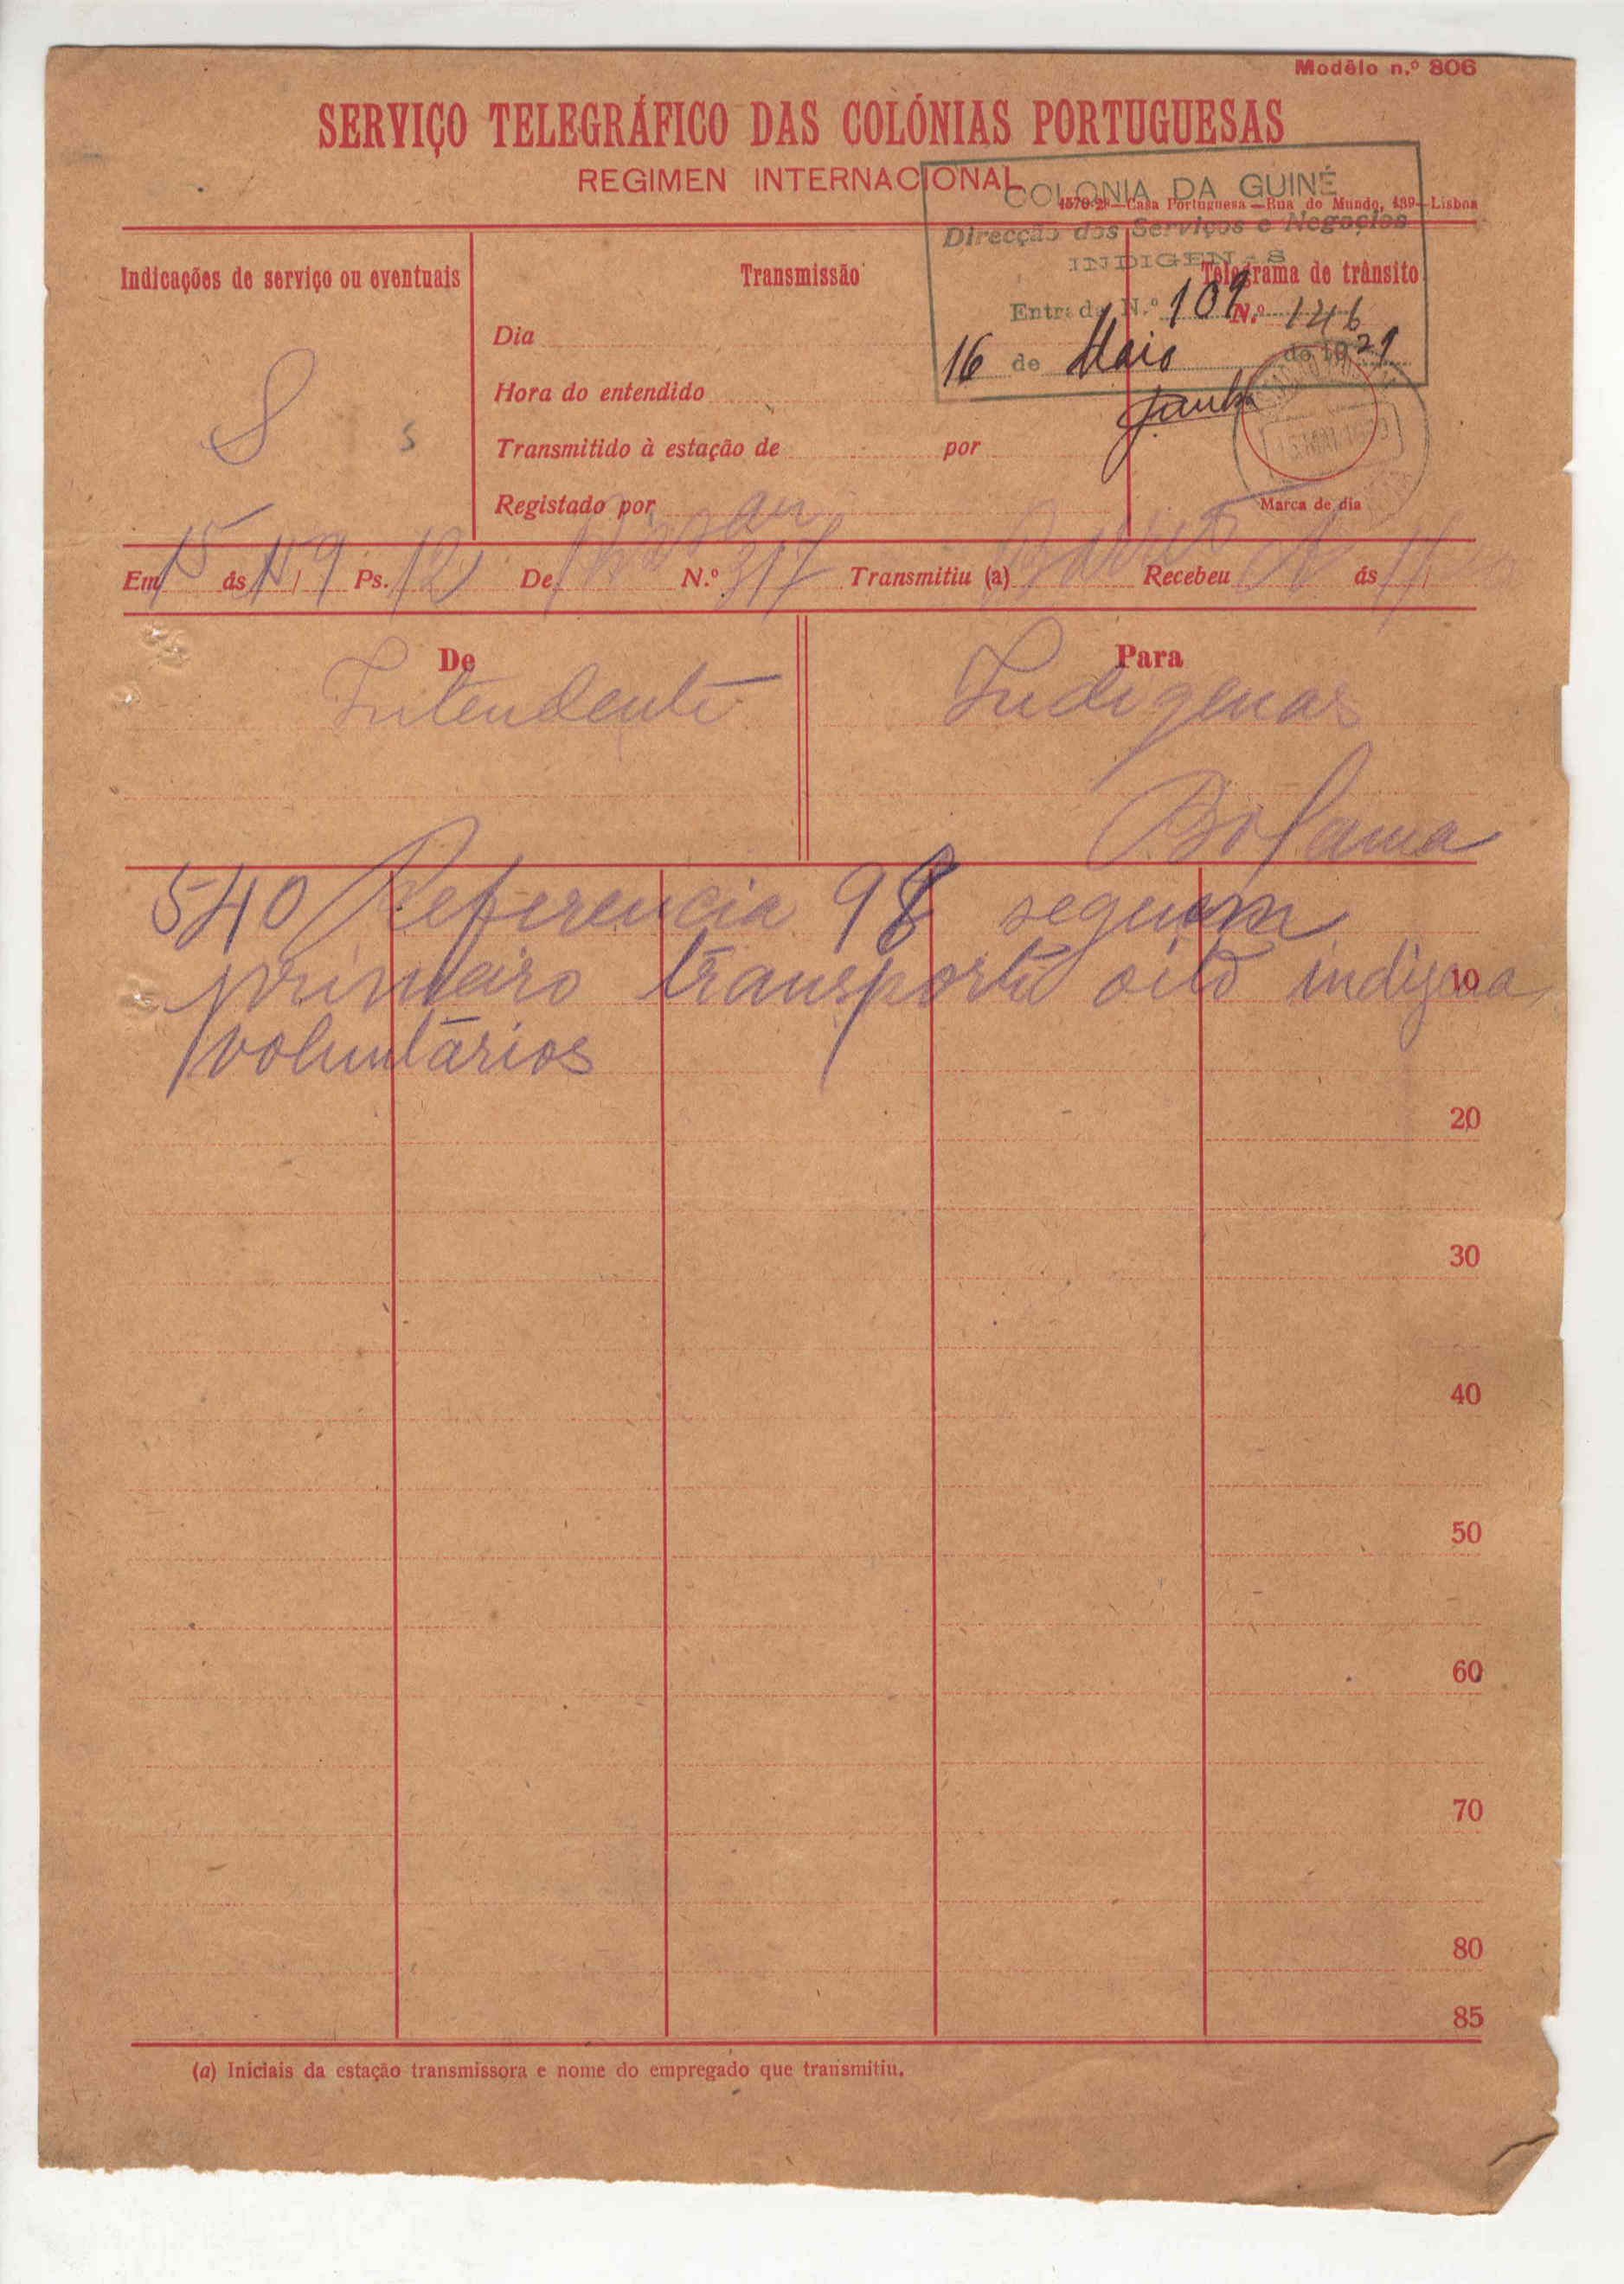 Modêlo n.º 806
SERVIÇO TELEGRÁFICO DAS COLÓNIAS PORTUGUESAS
REGIMEN INTERNACIONAL
COLONIA DA GUINÉ
1570-2º—Casa Portuguesa—Rua do Mundo, 139—Lisboa
Direcção dos Serviços e Negocios
INDIGENAS
Indicações de serviço ou eventuais
Transmissão
Telegrama de trânsito
Entrada N.º 109
N.º 146
Dia
16 de Maio de 1929
Hora do entendido
8
s
Transmitido à estação de por
Registado por
Marca de dia
Em 15 ás Ps. 12 De N.º 317 Transmitiu (a) Recebeu ás
De
Para
Intendente
Indigenas
Bolama
540 Referencia 98 seguem
primeiro transporte oito indigena
voluntários
10
20
30
40
50
60
70
80
85
(a) Iniciais da estação transmissora e nome do empregado que transmitiu.